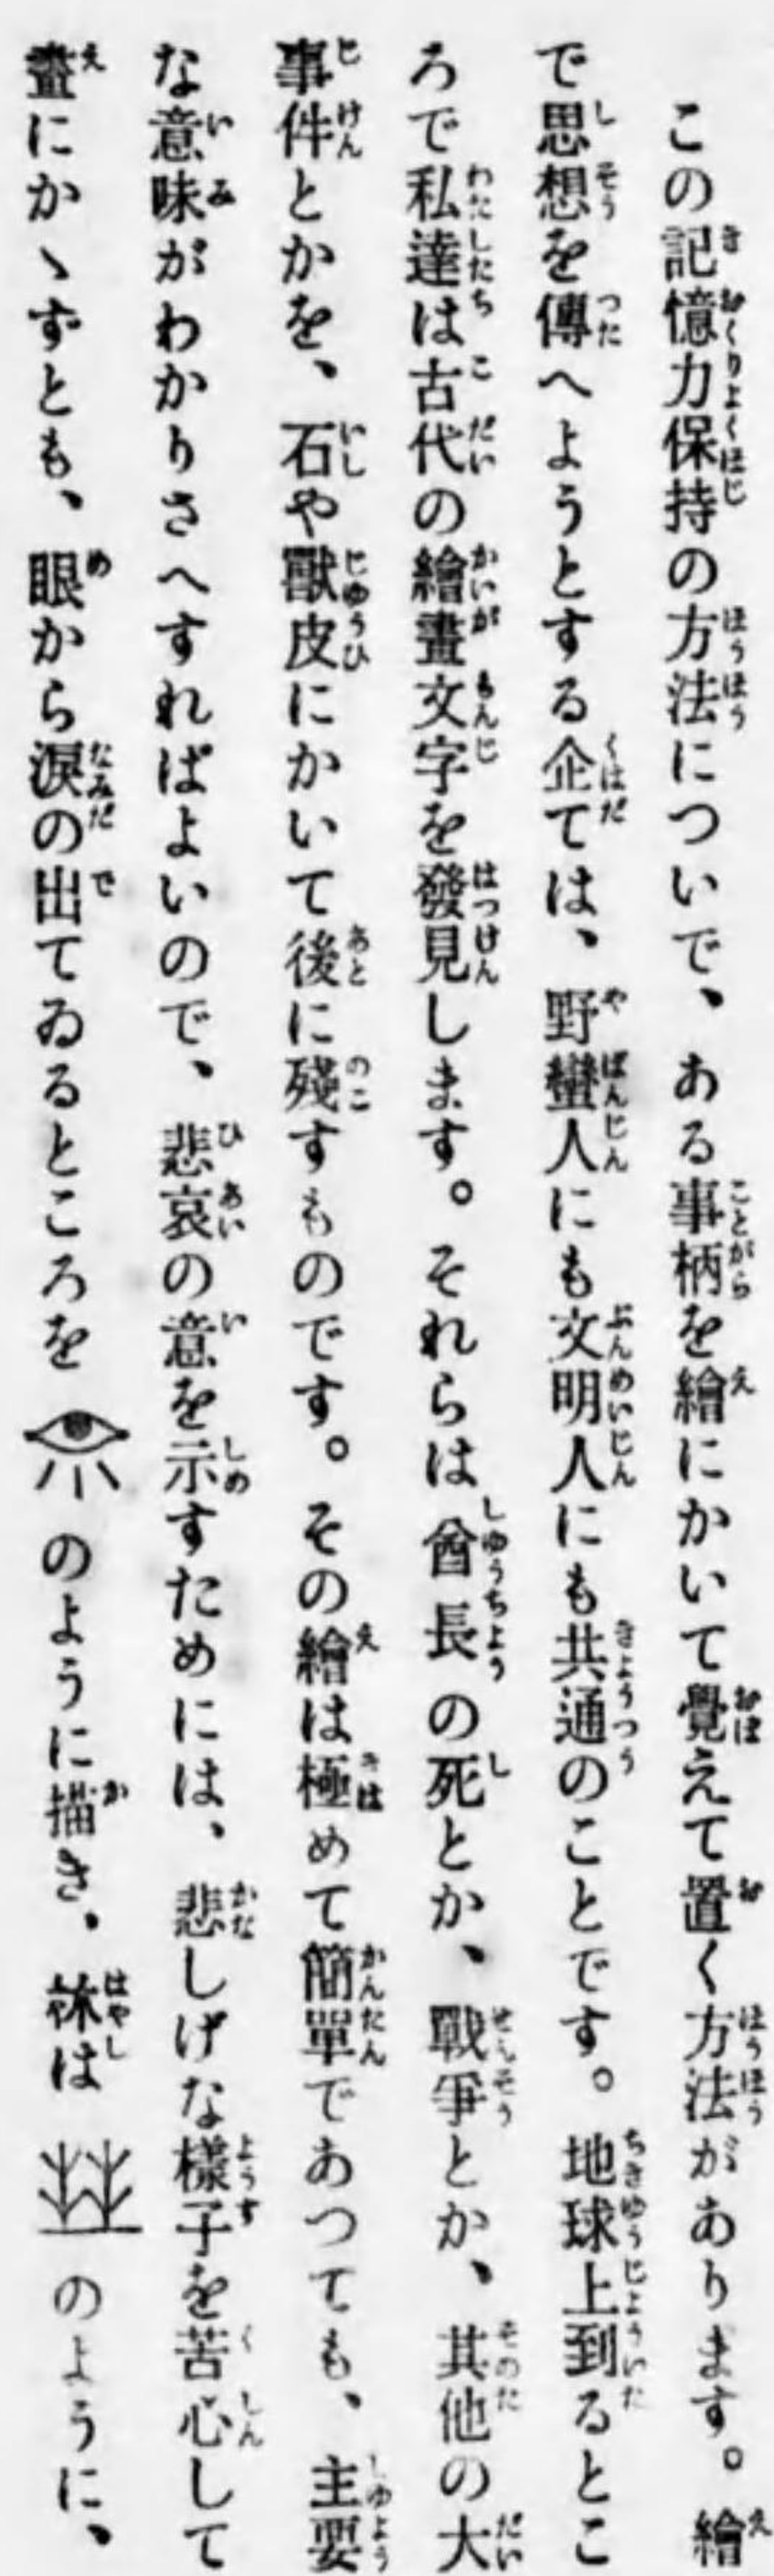 この記憶力保持の方法についで、ある事柄を繪にかいて覺えて置く方法があります。繪
で思想を傳へようとする企ては、野蠻人にも文明人にも共通のことです。地球上到るとこ
ろで私達は古代の繪畫文字を發見します。それらは酋長の死とか、戰爭とか、其他の大
事件とかを、石や獸皮にかいて後に殘すものです。その繪は極めて簡單であつても、主要
な意味がわかりさへすればよいので、悲哀の意を示すためには、悲しげな樣子を苦心して
畫にかゝずとも、眼から涙の出てゐるところをのように描き、林はのように、